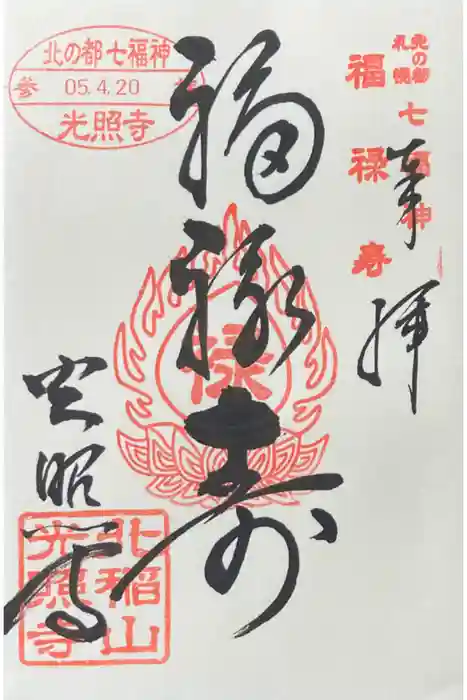 北の都札幌七福神
福禄寿
奉拝
北の都七福神
参 05.4.20
光照寺
福禄寿
禄
光照寺
北稲山
光照寺